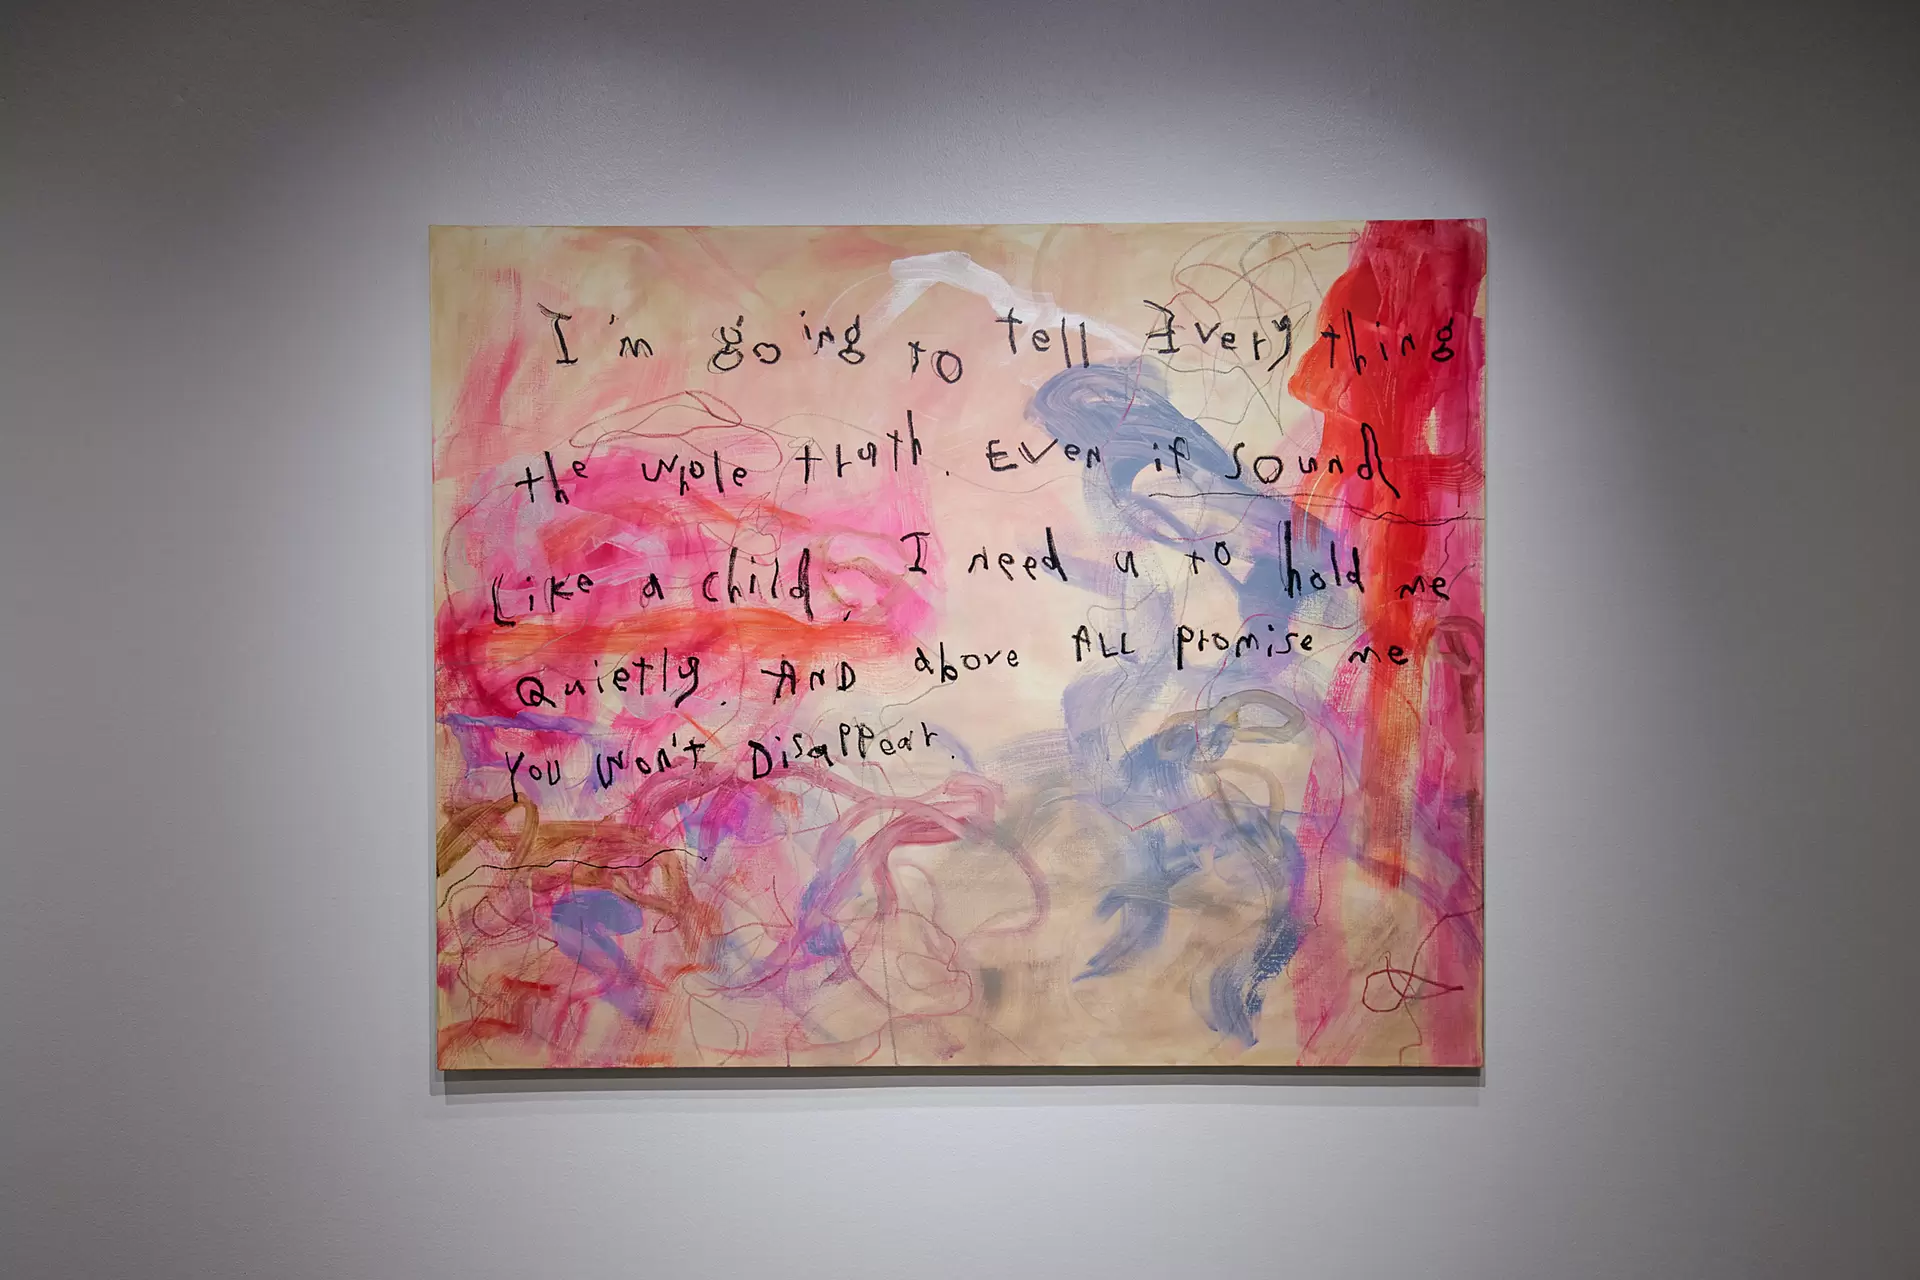 I'm going to tell Everything
the whole truth. EVEN if sound
Like a child, I need u to hold me
Quietly. AND above ALL promise me
YOU Won't Disappear.